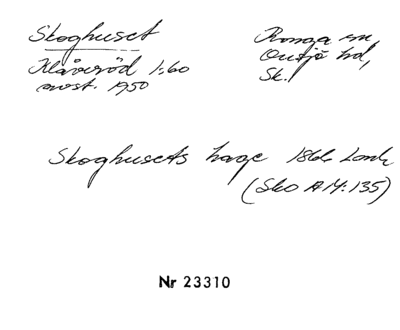 Skoghuset
Klåveröd 1:60
avst. 1950
Konga sn,
Onsjö hd,
Sk.
Skoghusets hage 1862 Lantm
(Sko AM:135)
Nr 23310